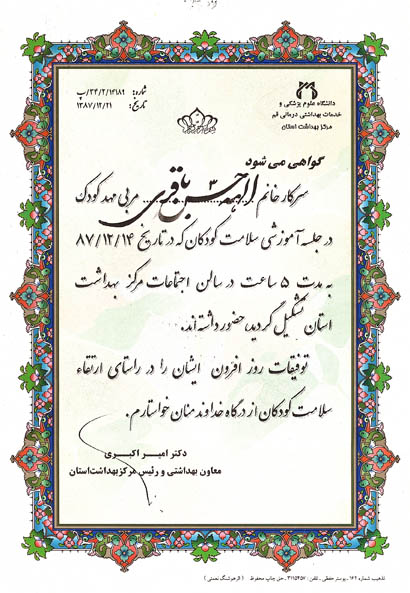 دانشگاه علوم پزشکی و
خدمات بهداشتی درمانی قم
مرکز بهداشت استان
شماره: ۳۴/۲/۱۴۱۸۹/پ
تاریخ: ۱۳۸۷/۱۲/۲۱
گواهی می شود
سرکار خانم الهه حسن باقری مربی مهد کودک
در جلسه آموزشی سلامت کودکان که در تاریخ ۸۷/۱۲/۱۴
به مدت ۵ ساعت در سالن اجتماعات مرکز بهداشت
استان تشکیل گردید، حضور داشته‌اند.
توفیقات روز افزون ایشان را در راستای ارتقاء
سلامت کودکان از درگاه خداوند منان خواستارم.
دکتر امیر اکبری
معاون بهداشتی و رئیس مرکز بهداشت استان
تذهیب شماره ۱۶۲ ـ پوستر حقیقی ـ تلفن: ۳۱۱۵۴۵۷ ـ حق چاپ محفوظ